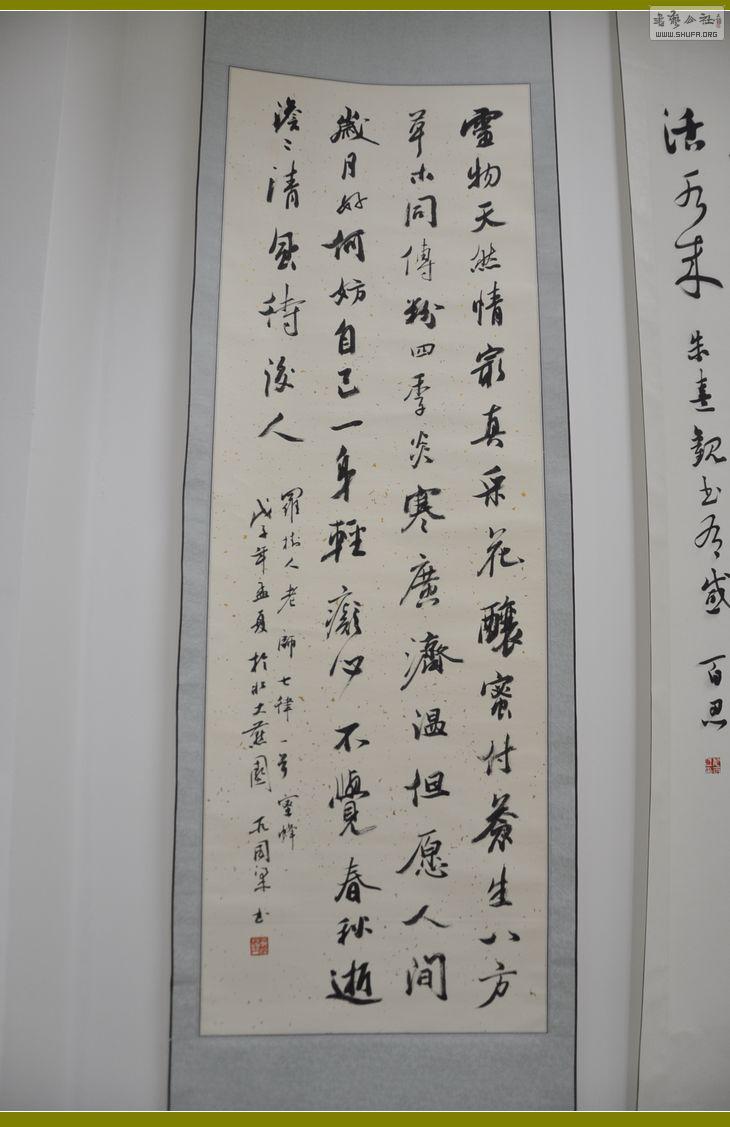 靈物天然情最真采花釀蜜付蒼生八方
草木同傳粉四季炎寒廣濟温但愿人间
歲月好何妨自己一身輕癡心不覺春秋逝
淡々清風待後人
羅樹人老師七律一首蜜蜂
戊子年孟夏於北大燕園 周梁书
活水来
朱熹觀书有感
百忍
书艺公社
WWW.SHUFA.ORG